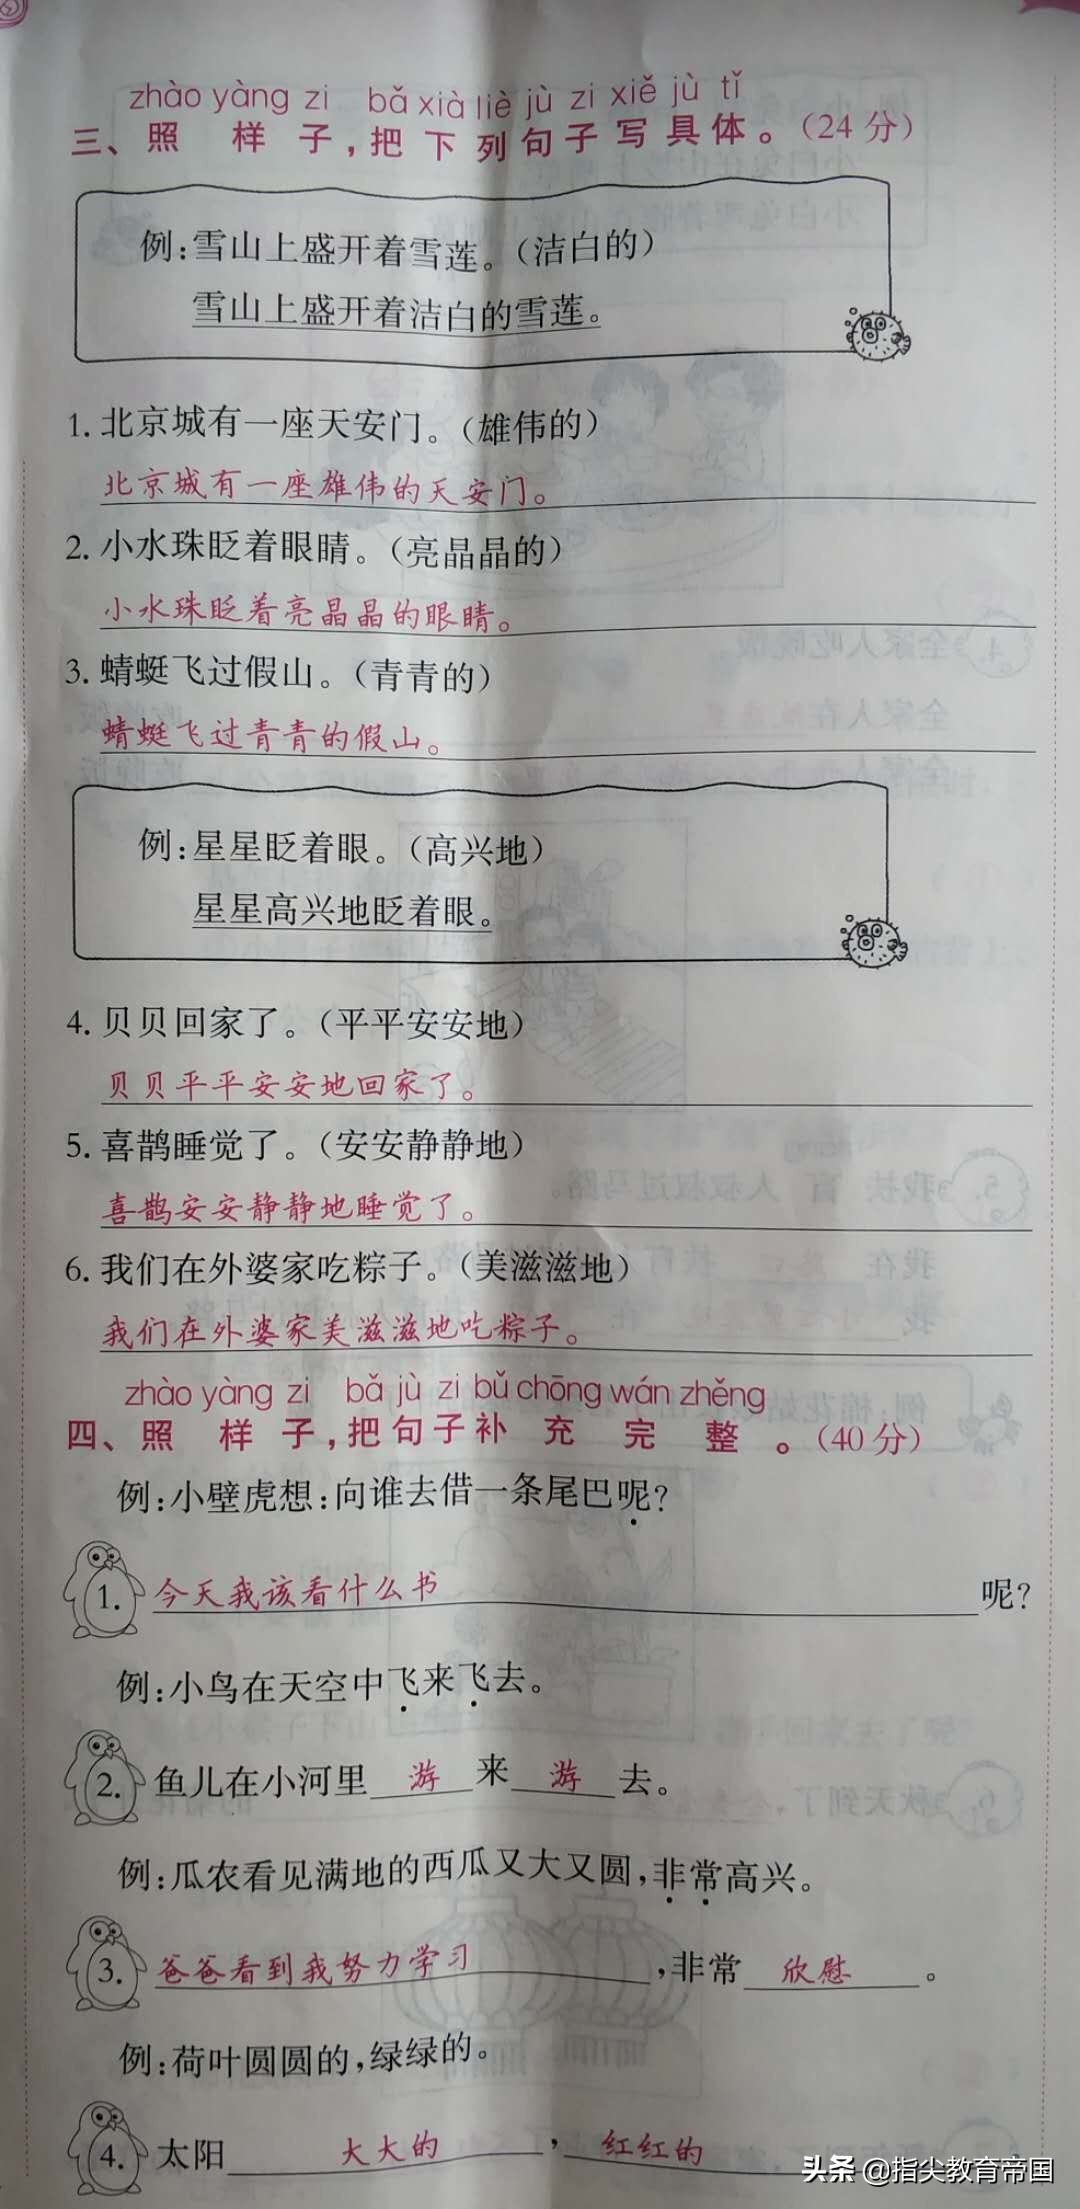 zhào yàng zi bǎ xià liè jù zi xiě jù tǐ
三、照样子,把下列句子写具体。(24分)
例:雪山上盛开着雪莲。(洁白的)
雪山上盛开着洁白的雪莲。
1. 北京城有一座天安门。(雄伟的)
北京城有一座雄伟的天安门。
2. 小水珠眨着眼睛。(亮晶晶的)
小水珠眨着亮晶晶的眼睛。
3. 蜻蜓飞过假山。(青青的)
蜻蜓飞过青青的假山。
例:星星眨着眼。(高兴地)
星星高兴地眨着眼。
4. 贝贝回家了。(平平安安地)
贝贝平平安安地回家了。
5. 喜鹊睡觉了。(安安静静地)
喜鹊安安静静地睡觉了。
6. 我们在外婆家吃粽子。(美滋滋地)
我们在外婆家美滋滋地吃粽子。
zhào yàng zi bǎ jù zi bǔ chōng wán zhěng
四、照样子,把句子补充完整。(40分)
例:小壁虎想:向谁去借一条尾巴呢?
1. 今天我该看什么书呢?
例:小鸟在天空中飞来飞去。
2. 鱼儿在小河里游来游去。
例:瓜农看见满地的西瓜又大又圆,非常高兴。
3. 爸爸看到我努力学习,非常欣慰。
例:荷叶圆圆的,绿绿的。
4. 太阳大大的,红红的
头条 @指尖教育帝国